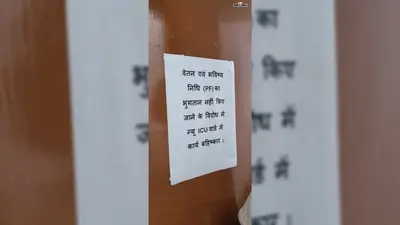 वेतन एवं भविष्य
निधि (PF) का
भुगतान नहीं किए
जाने के विरोध में
न्यू ICU वार्ड में
कार्य बहिष्कार।